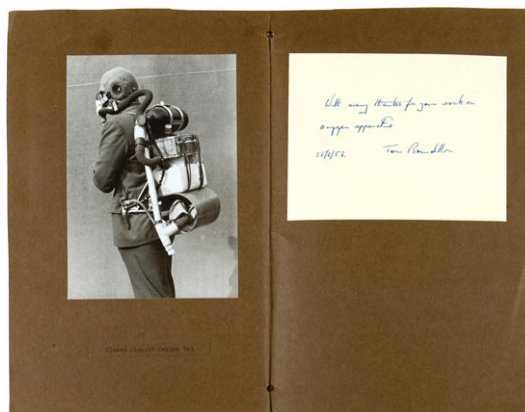 Closed Circuit Oxygen Set
With many thanks for your work on
oxygen apparatus
Tom Bourdillon